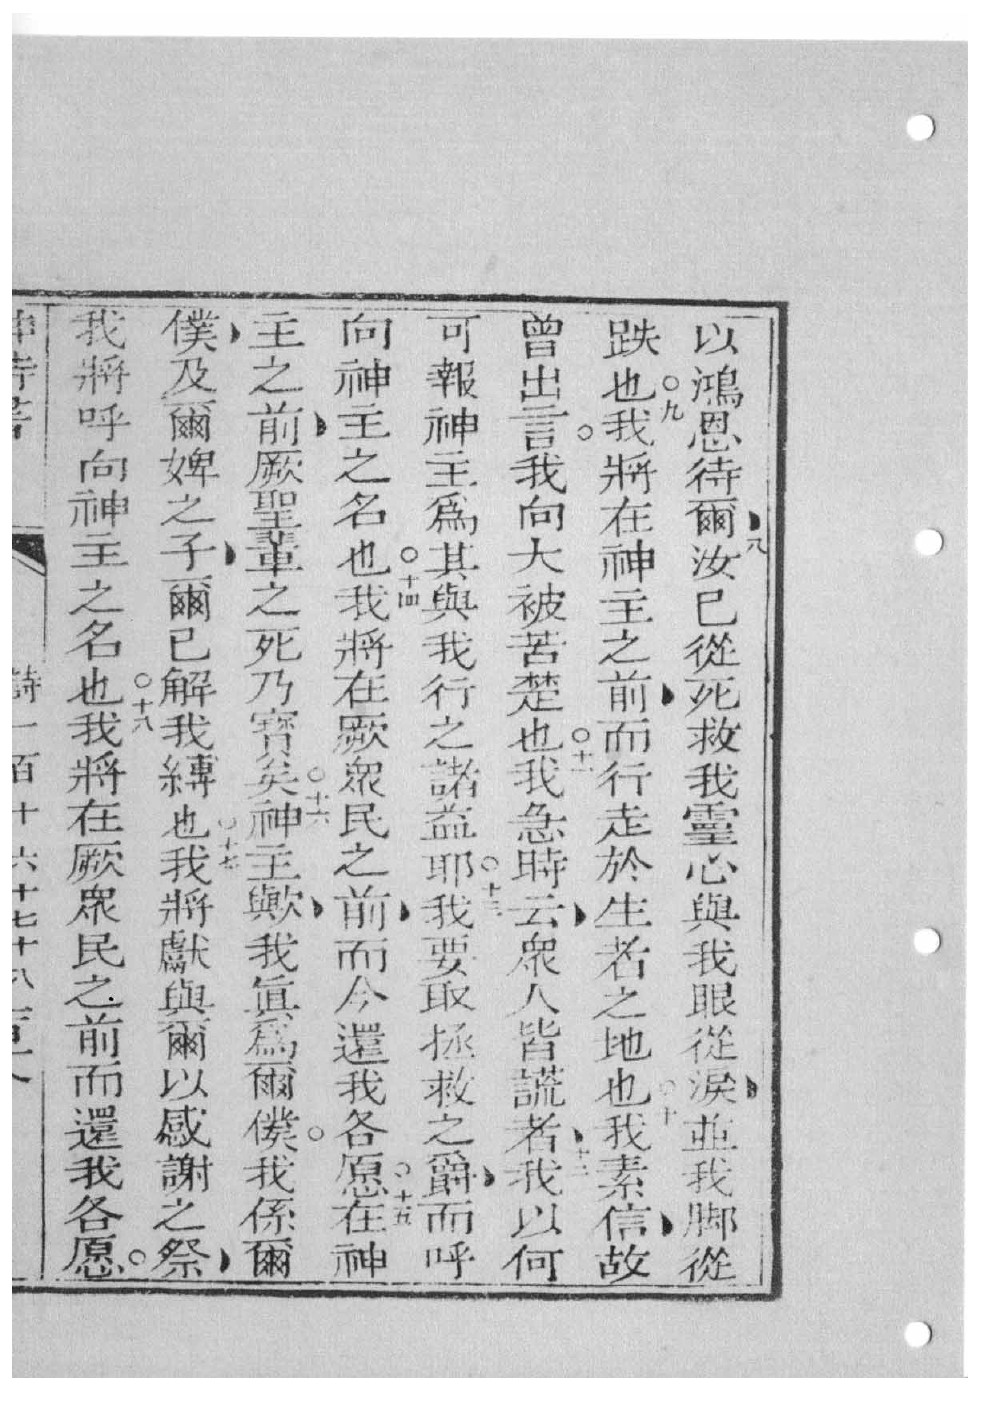 以鴻恩待爾八汝已從死救我靈心與我眼從淚並我脚從
跌也○九我將在神主之前而行走於生者之地也○十我素信故
曾出言○我向大被苦楚也○十一我急時云衆人皆謊者十二我以何
可報神主爲其與我行之諸益耶○十三我要取拯救之爵而呼
向神主之名也○十四我將在厥衆民之前而今還我各愿○十五在神
主之前厥聖輩之死乃寶矣○十六神主歟我眞爲爾僕○我係爾
僕及爾婢之子爾已解我縛也○十七我將獻與爾以感謝之祭
我將呼向神主之名也○十八我將在厥衆民之前而還我各愿○
神詩書 詩一百十六十七十八